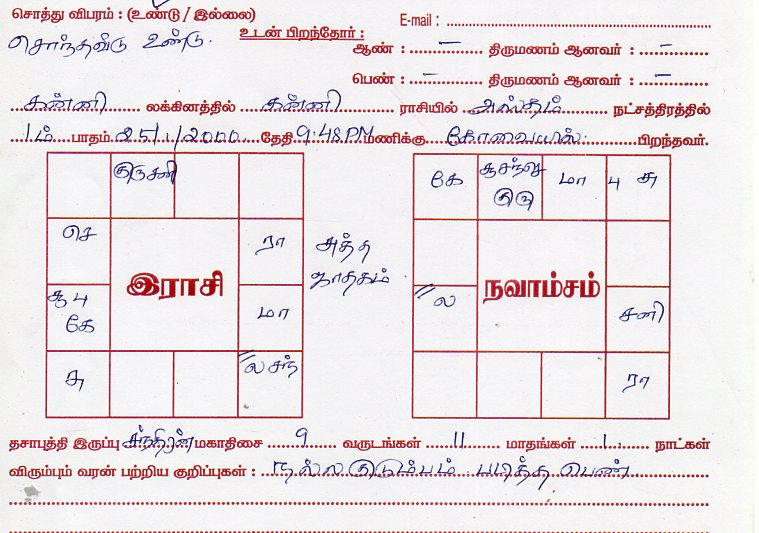 சொத்து விபரம் : (உண்டு / இல்லை) E-mail :
சொந்தவீடு உண்டு. உடன் பிறந்தோர் : ஆண் : – திருமணம் ஆனவர் : –
பெண் : – திருமணம் ஆனவர் : –
கன்னி லக்கினத்தில் கன்னி ராசியில் அஸ்தம் நட்சத்திரத்தில்
1ம் பாதம் 25/1/2000 தேதி 9:48 PM மணிக்கு கோவையில் பிறந்தவர்.
குரு சனி
கே சூ சந் குரு மா பு சு
செ ரா
இராசி
சுத்த ஜாதகம்
நவாம்சம்
சூ பு கே மா
ல சனி
சு ல சந்
ரா
தசாபுத்தி இருப்பு சந்திரன் மகாதிசை 9 வருடங்கள் 11 மாதங்கள் 1 நாட்கள்
விரும்பும் வரன் பற்றிய குறிப்புகள் : நல்ல குடும்பம் படித்த பெண்